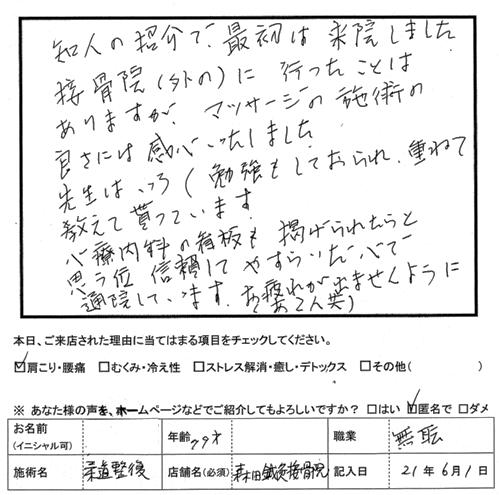 知人の紹介で、最初は来院しました
接骨院(外の)に行ったことは
ありますが、マッサージの施術の
良さには感心いたしました
先生はいろ勉強もしておられ、重ねて
教えて貰っています
心療内科の看板も掲げられたらと
思う位信頼してやすらいだ心で
通院しています。お疲れが出ませんように
本日、ご来店された理由に当てはまる項目をチェックしてください。
☑肩こり・腰痛 □むくみ・冷え性 □ストレス解消・癒し・デトックス □その他( )
※ あなた様の声を、ホームページなどでご紹介してもよろしいですか? □はい ☑匿名で □ダメ
お名前 (イニシャル可) 年齢 79才 職業 無職
施術名 柔道整復 店舗名(必須) 森田鍼灸接骨院 記入日 21年6月1日